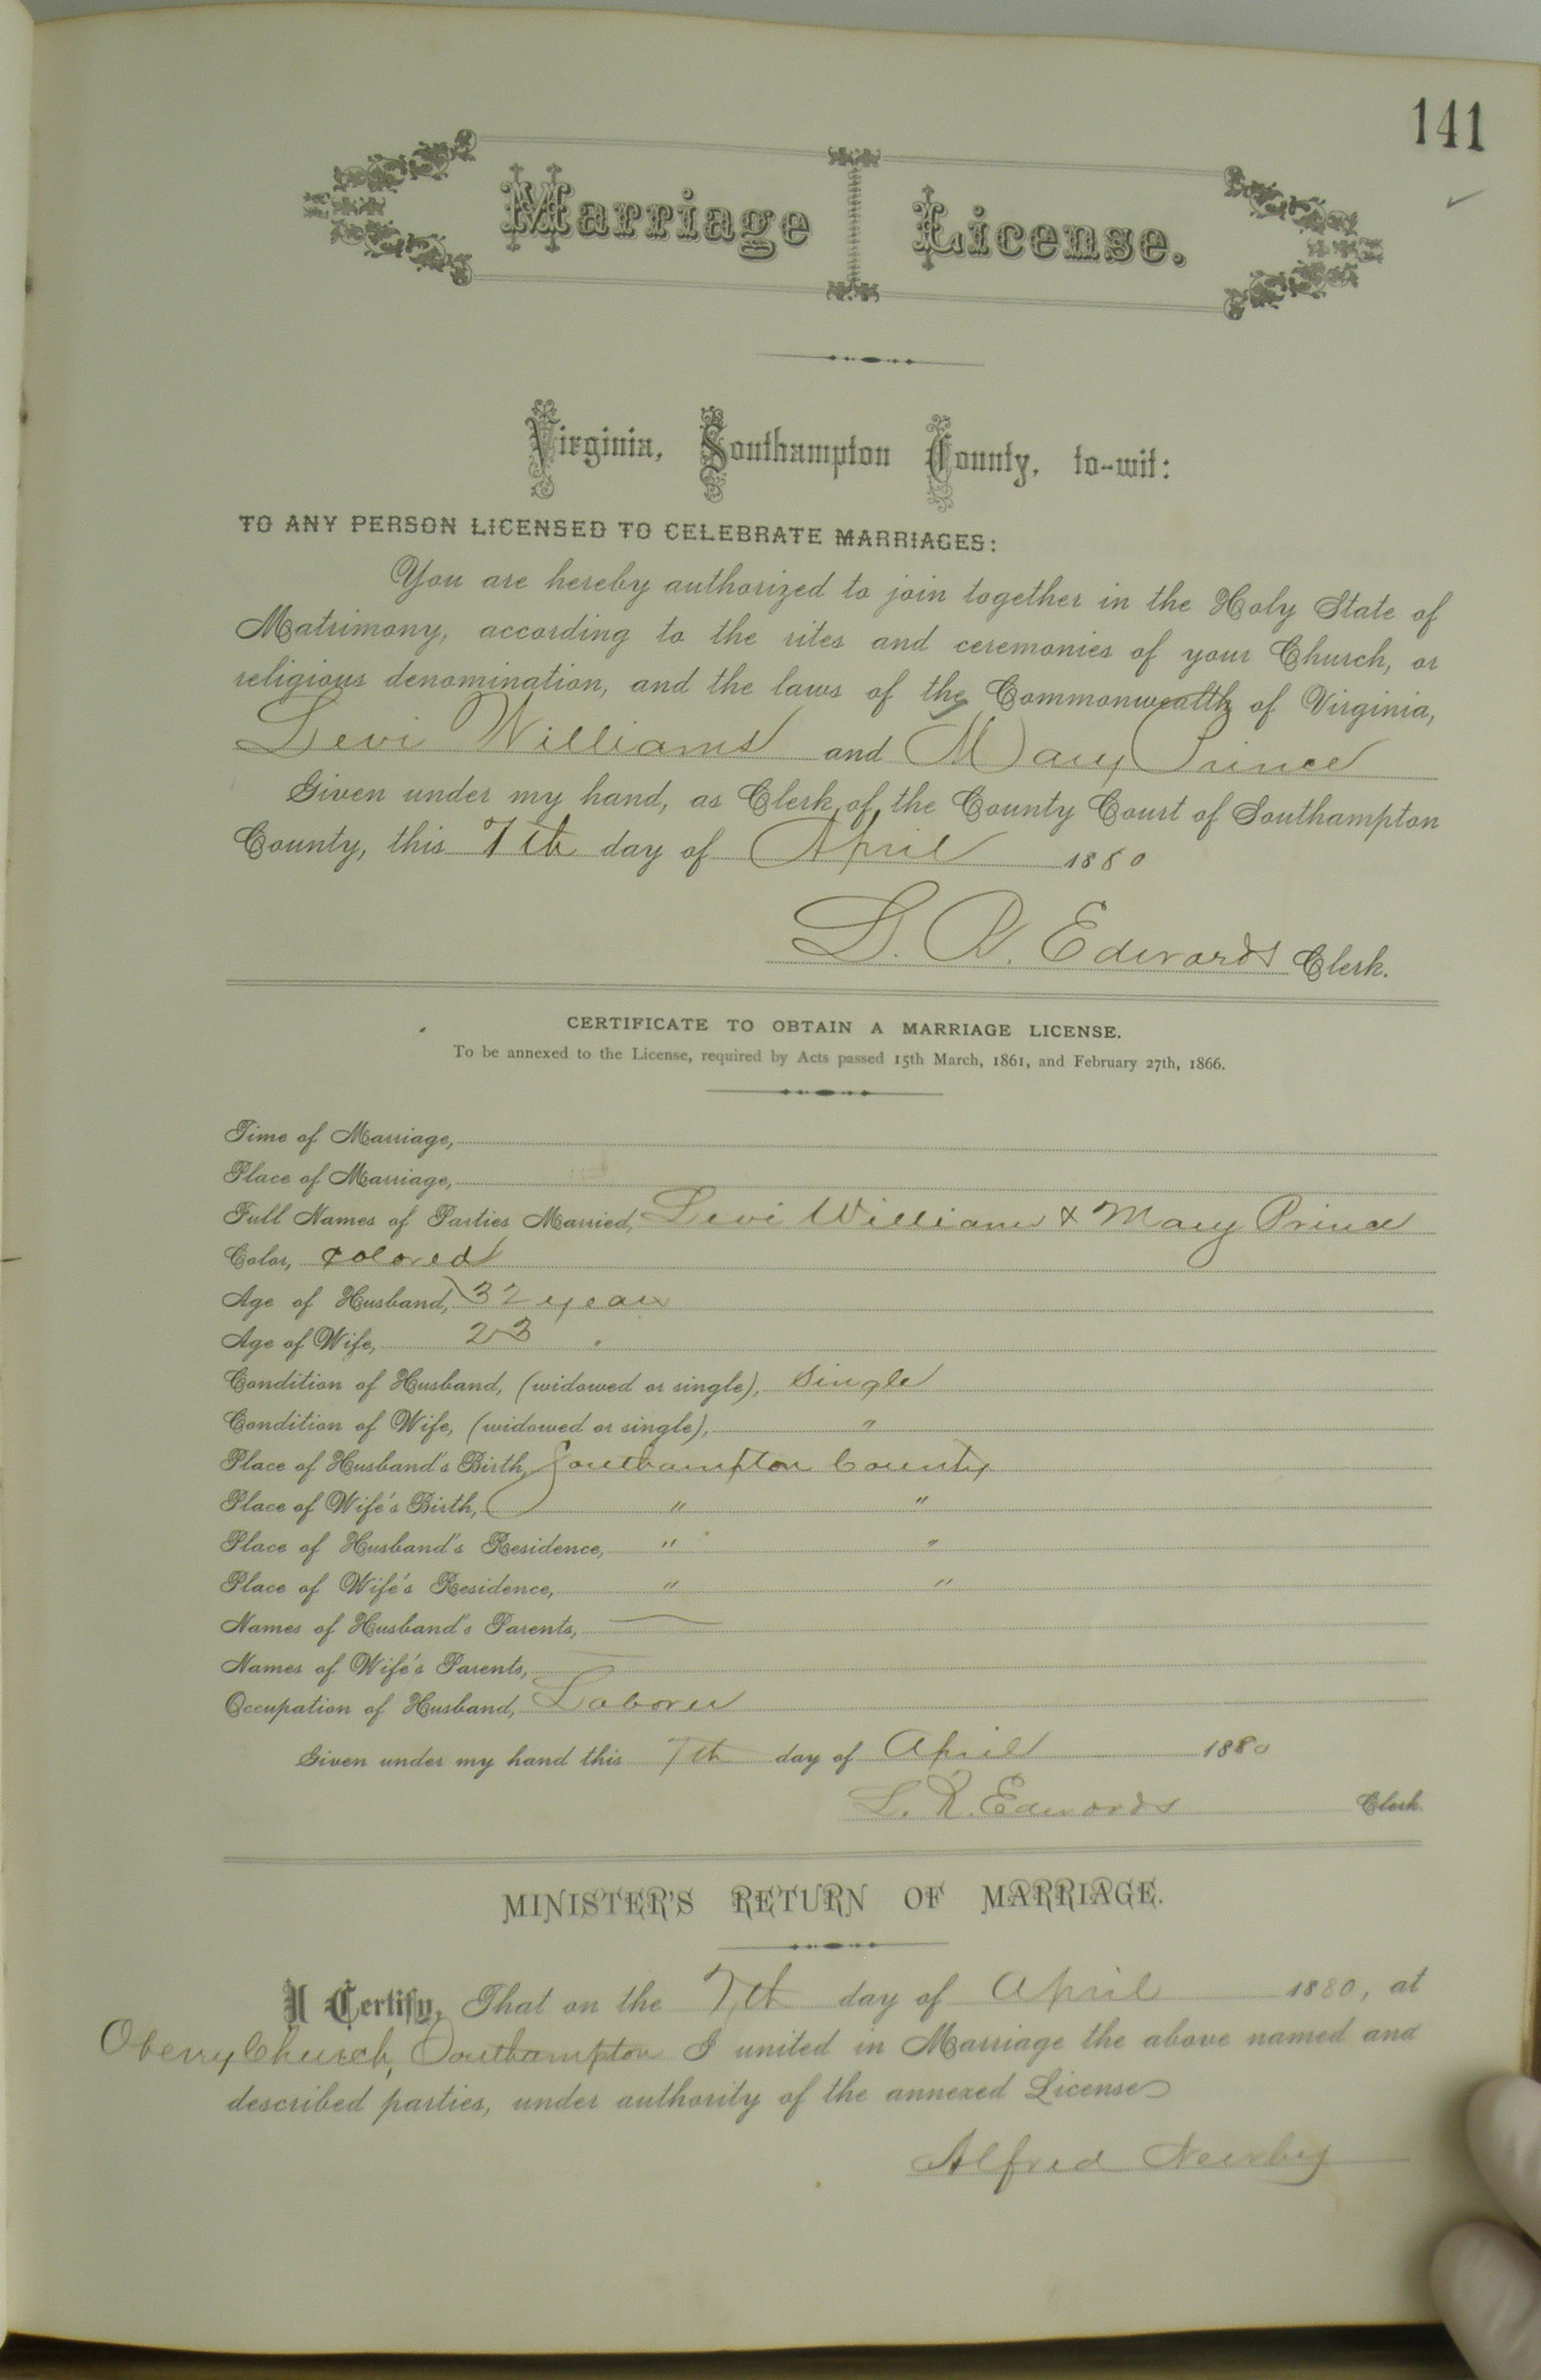 141
Marriage License.
Virginia, Southampton County, to-wit:
TO ANY PERSON LICENSED TO CELEBRATE MARRIAGES:
You are hereby authorized to join together in the Holy State of
Matrimony, according to the rites and ceremonies of your Church, or
religious denomination, and the laws of the Commonwealth of Virginia,
Levi Williams and Mary Prince
Given under my hand, as Clerk of the County Court of Southampton
County, this 7th day of April 1880
L. R. Edwards Clerk.
CERTIFICATE TO OBTAIN A MARRIAGE LICENSE.
To be annexed to the License, required by Acts passed 15th March, 1861, and February 27th, 1866.
Time of Marriage,
Place of Marriage,
Full Names of Parties Married, Levi Williams & Mary Prince
Color, colored
Age of Husband, 32 years
Age of Wife, 23 "
Condition of Husband, (widowed or single), Single
Condition of Wife, (widowed or single), "
Place of Husband's Birth, Southampton County
Place of Wife's Birth, " "
Place of Husband's Residence, " "
Place of Wife's Residence, " "
Names of Husband's Parents, —
Names of Wife's Parents, —
Occupation of Husband, Laborer
Given under my hand this 7th day of April 1880
L. R. Edwards Clerk.
MINISTER'S RETURN OF MARRIAGE.
I Certify, That on the 7th day of April 1880, at
Oberry Church, Southampton I united in Marriage the above named and
described parties, under authority of the annexed License
Alfred Newby